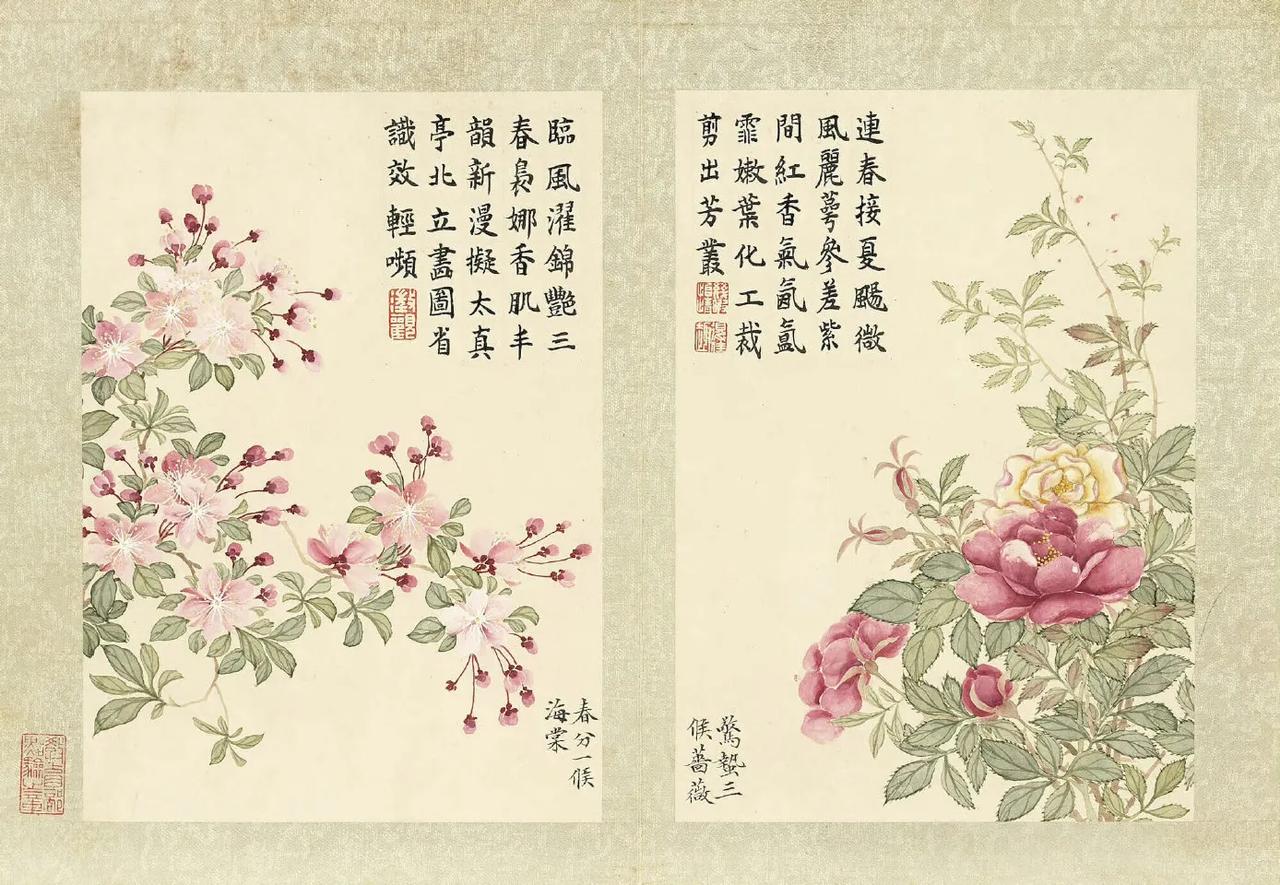 連春接夏颺微
風麗萼參差紫
間紅香氣氤氳
霏嫩葉化工裁
剪出芳叢
驚蟄三
候薔薇
臨風濯錦豔三
春裊娜香肌丰
韻新漫擬太真
亭北立畵圖省
識效輕嚬
春分一候
海棠